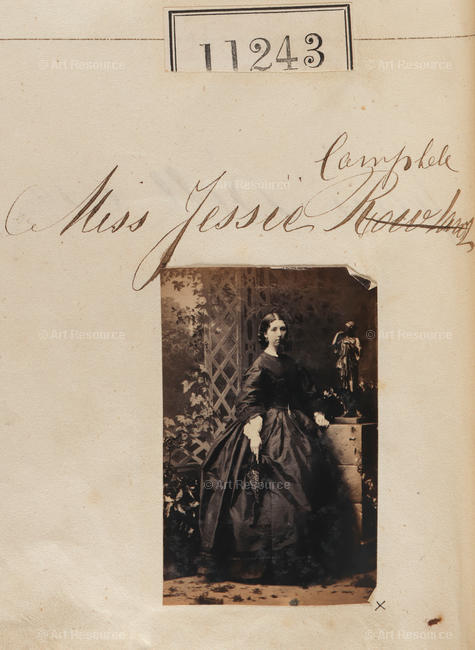 11243
Campbele
Miss Jessie Rowland
x
© Art Resource
© Art Resource
© Art Resource
© Art Resource
© Art Resource
© Art Resource
© Art Resource
© Art Resource
© Art Resource